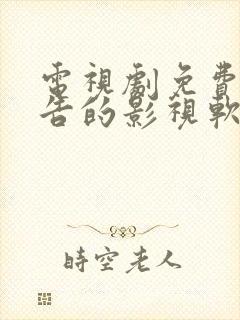 電視劇免費
告的影視軟
時空老人